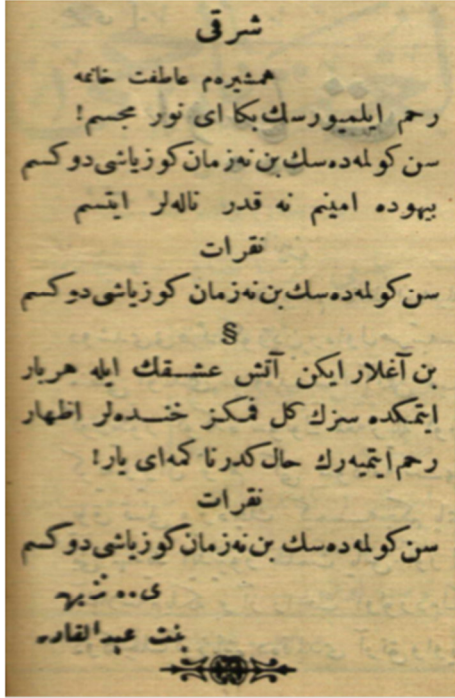 شرقی
همشیره‌م عاطفت خانمه
رحم ایلمیورسك بكا ای نور مجسم!
سن كولمه‌ده‌سك بن نه‌زمان كوزیاشی دوكسم
بیهوده امینم نه قدر ناله‌لر ایتسم
نقرات
سن كولمه‌ده‌سك بن نه‌زمان كوزیاشی دوكسم
§
بن آغلار ایكن آتش عشقك ایله هربار
ایتمكده سزك كل فمكز خنده‌لر اظهار
رحم ایتمیه‌رك حال كدرناكمه‌ای یار!
نقرات
سن كولمه‌ده‌سك بن نه‌زمان كوزیاشی دوكسم
ی.. نزیهه
بنت عبدالقادر